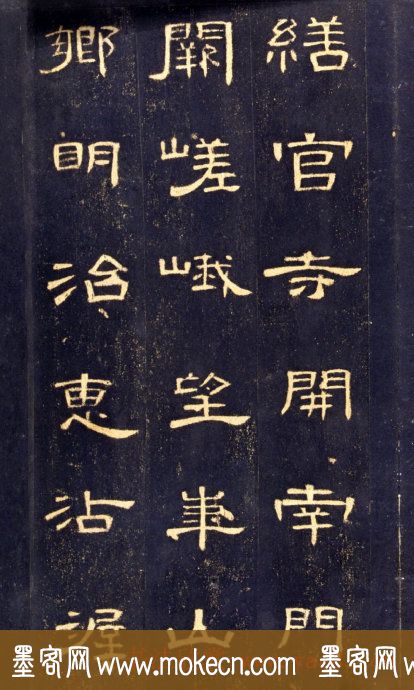 繕官寺開南門
闕嵯峨望華山
鄉明治惠沾渥
墨客网 www.mokecn.com 墨客网